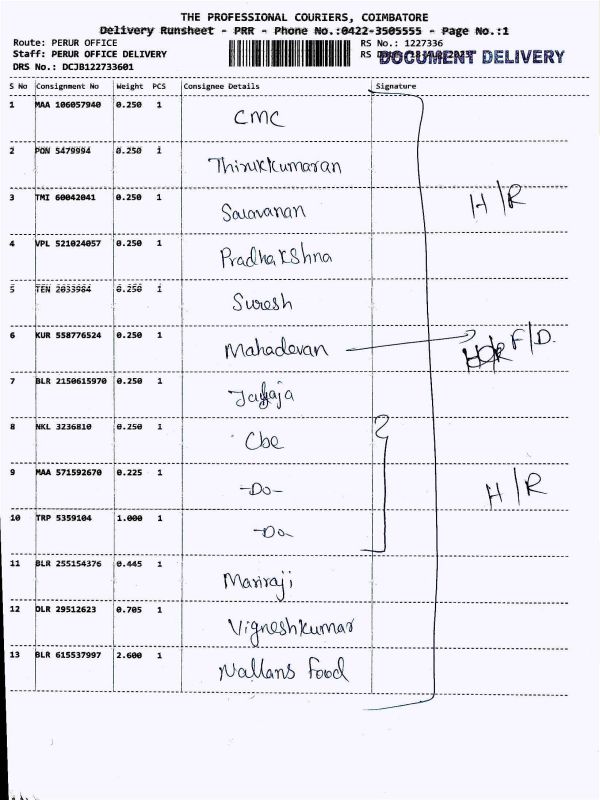 THE PROFESSIONAL COURIERS, COIMBATORE
Delivery Runsheet - PRR - Phone No.:0422-3505555 - Page No.:1
Route: PERUR OFFICE RS No.: 1227336
Staff: PERUR OFFICE DELIVERY RS DOCUMENT DELIVERY
DRS No.: DCJB122733601
S No Consignment No Weight PCS Consignee Details Signature
1 MAA 106057940 0.250 1 CMC
2 PON 5479994 0.250 1 Thirukkumaran
3 TMI 60042041 0.250 1 Saravanan H/R
4 VPL 521024057 0.250 1 Pradhakshna
5 TEN 2033984 0.250 1 Suresh
6 KUR 558776524 0.250 1 Mahadevan F/D.
7 BLR 2150615970 0.250 1
8 NKL 3236810 0.250 1 Cbe
9 MAA 571592670 0.225 1 -Do- H/R
10 TRP 5359104 1.000 1 -Do-
11 BLR 255154376 0.445 1 Mariraji
12 DLR 29512623 0.705 1 Vigneshkumar
13 BLR 615537997 2.600 1 Nallans Food